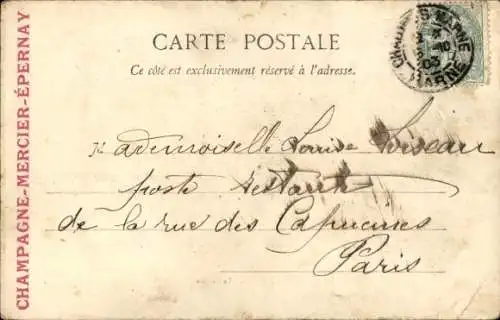 CARTE POSTALE
Ce côté est exclusivement réservé à l'adresse.
CHAMPAGNE-MERCIER-ÉPERNAY
MARNE
Mademoiselle Louise
poste restante
de la rue des Capucines
Paris